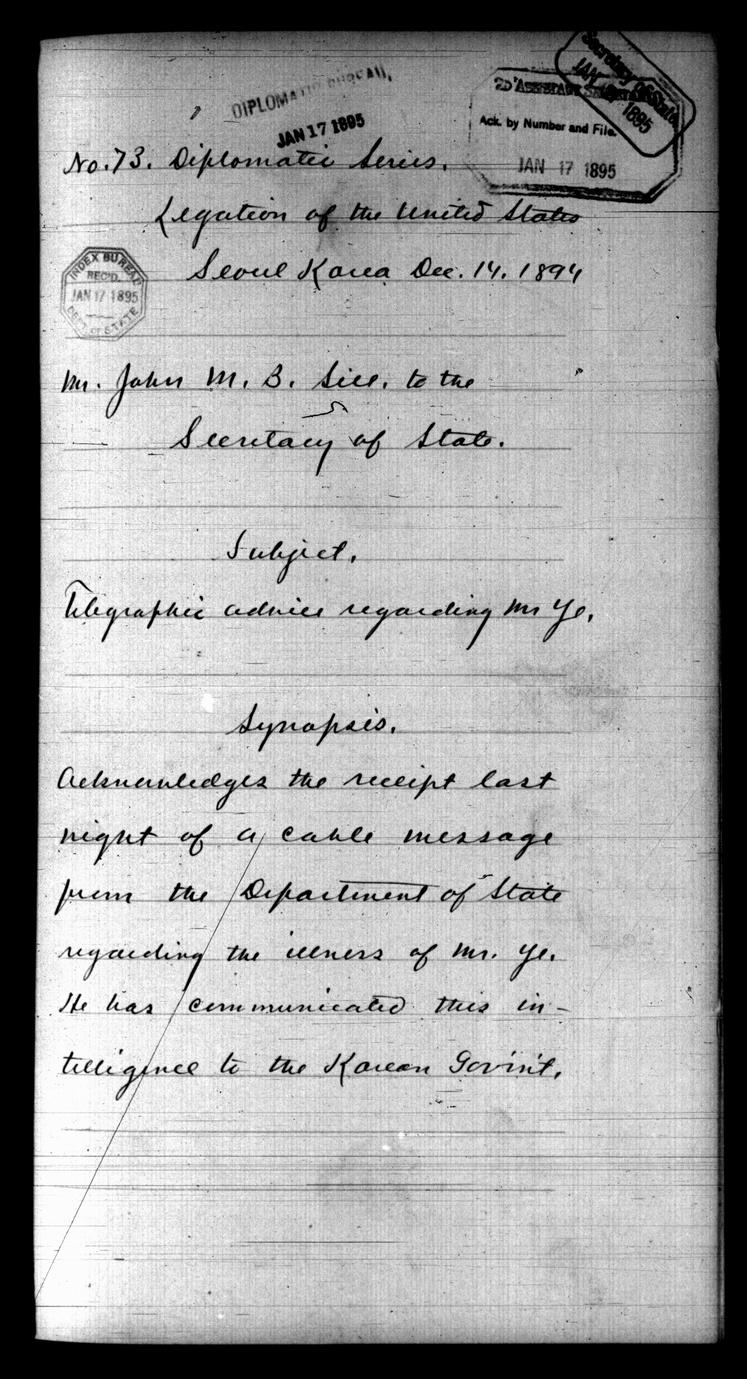 DIPLOMATIC BUREAU,
JAN 17 1895
Secretary of State
JAN
1895
2D ASSISTANT
Ack. by Number and File.
JAN 17 1895
No. 73. Diplomatic Series.
Legation of the United States
Seoul Korea Dec. 14. 1894
INDEX BUREAU
REC'D.
JAN 17 1895
DEPT. OF STATE
Mr. John M. B. Sill. to the
Secretary of State.
Subject.
Telegraphic advice regarding Mr Ye.
Synopsis.
Acknowledges the receipt last
night of a cable message
from the Department of State
regarding the illness of Mr. Ye.
He has communicated this in-
telligence to the Korean Gov'm't.